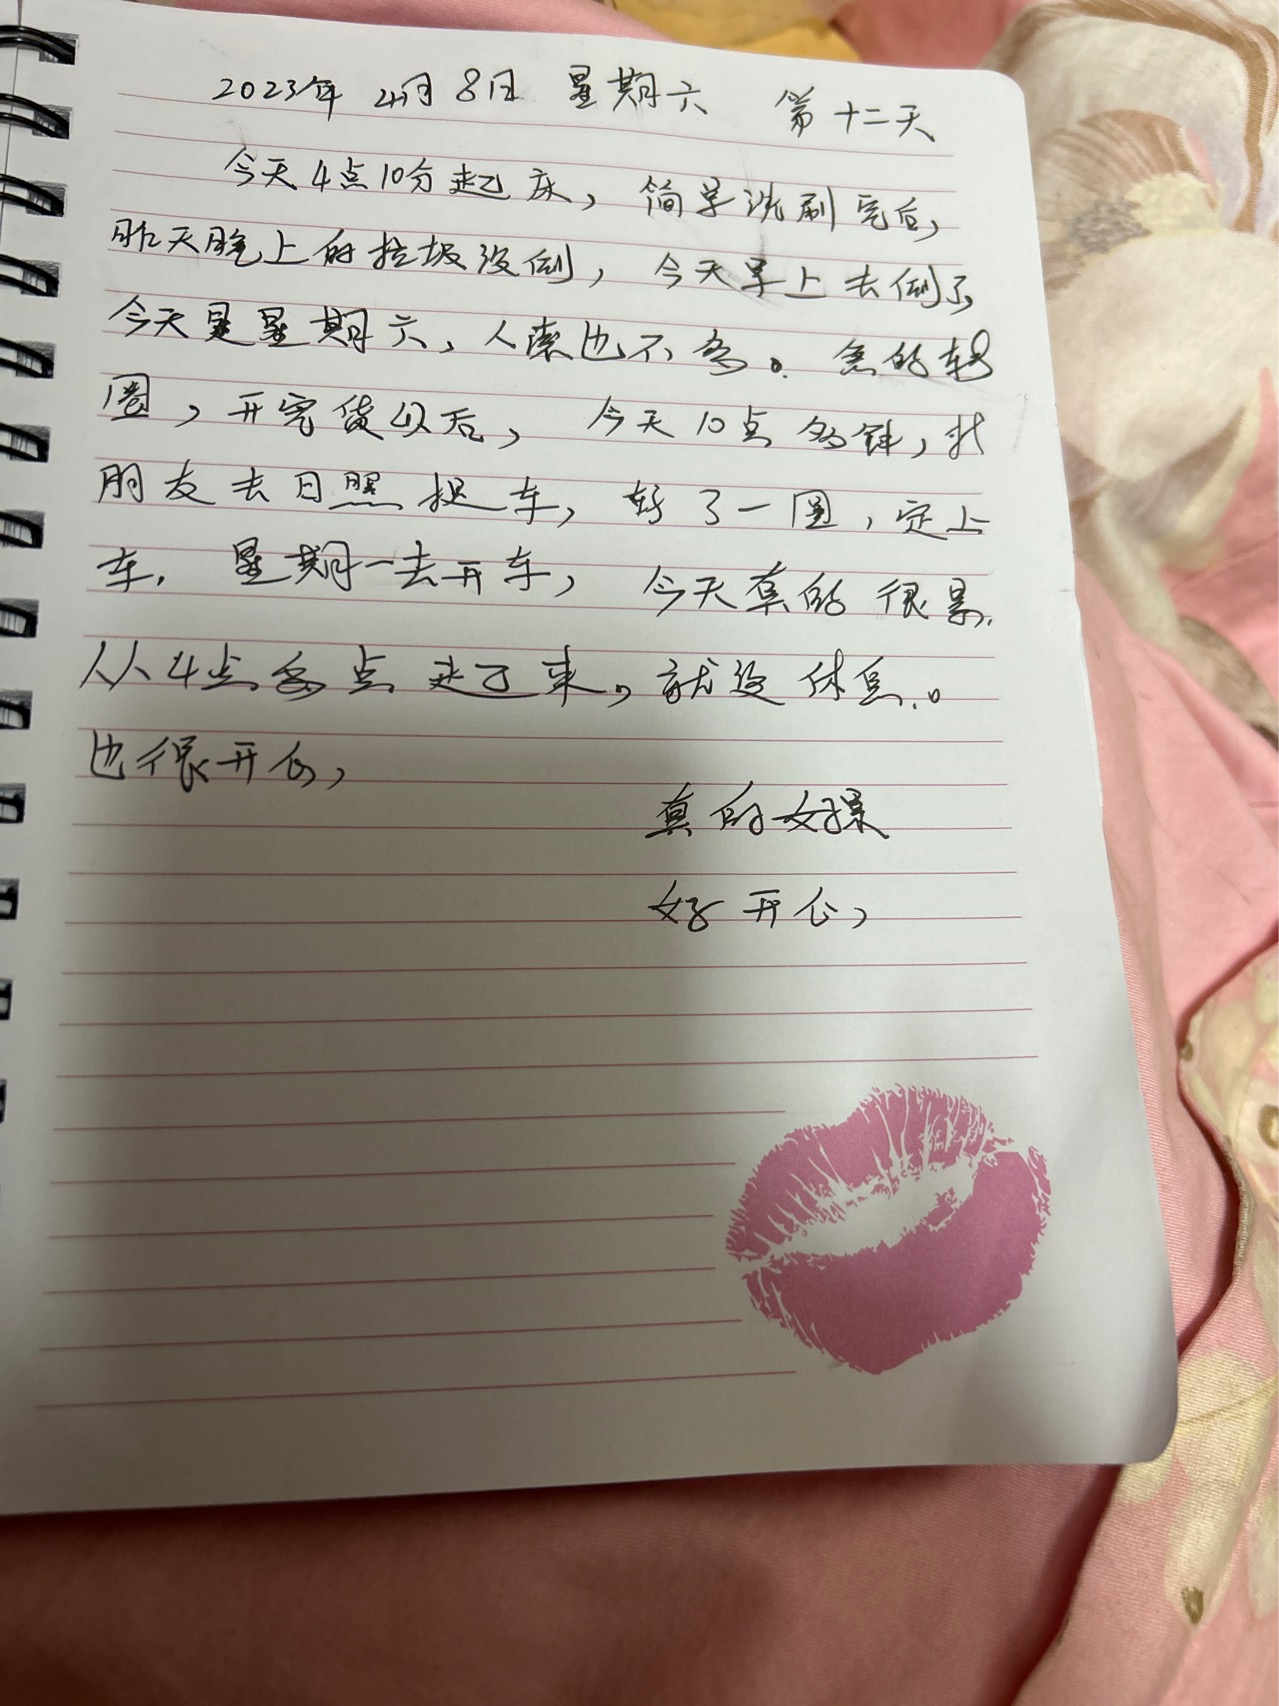 2023年 4月8日 星期六 第十二天
今天4点10分起床，简单洗刷完后，
昨天晚上的垃圾没倒，今天早上去倒了，
今天是星期六，人也不多。
圈，开完货以后，今天10点多钟，我
朋友去日照提车，了一圈，定上
车，星期一去开车，今天真的很累，
从4点多点起来，就没休息。
也很开心，
真的好累
好开心，